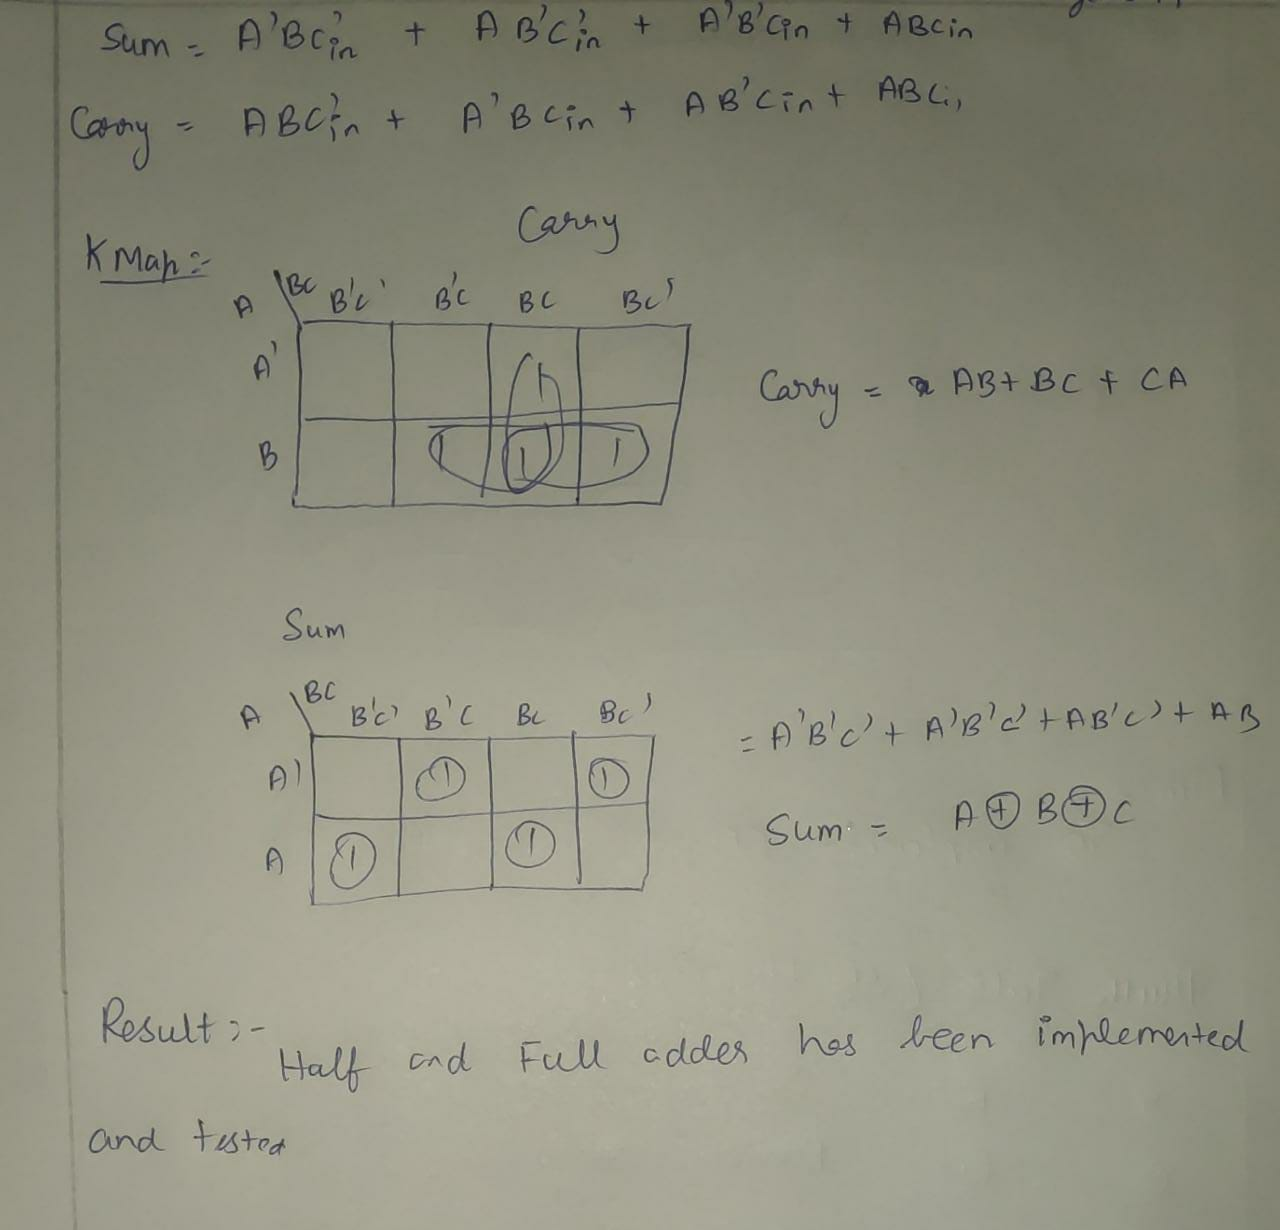 Sum = A'BC'in + AB'C'in + A'B'Cin + ABCin
Carry = ABC'in + A'BCin + AB'Cin + ABCi,
Carry
K Map :-
A \ BC B'C' B'C BC BC'
A' 1
B 1 1 1
Carry = AB + BC + CA
Sum
A \ BC B'C' B'C BC BC'
A' 1 1
A 1 1
= A'B'C' + A'B'C' + AB'C' + AB
Sum = A ⊕ B ⊕ C
Result :-
Half and Full adder has been implemented
and tested